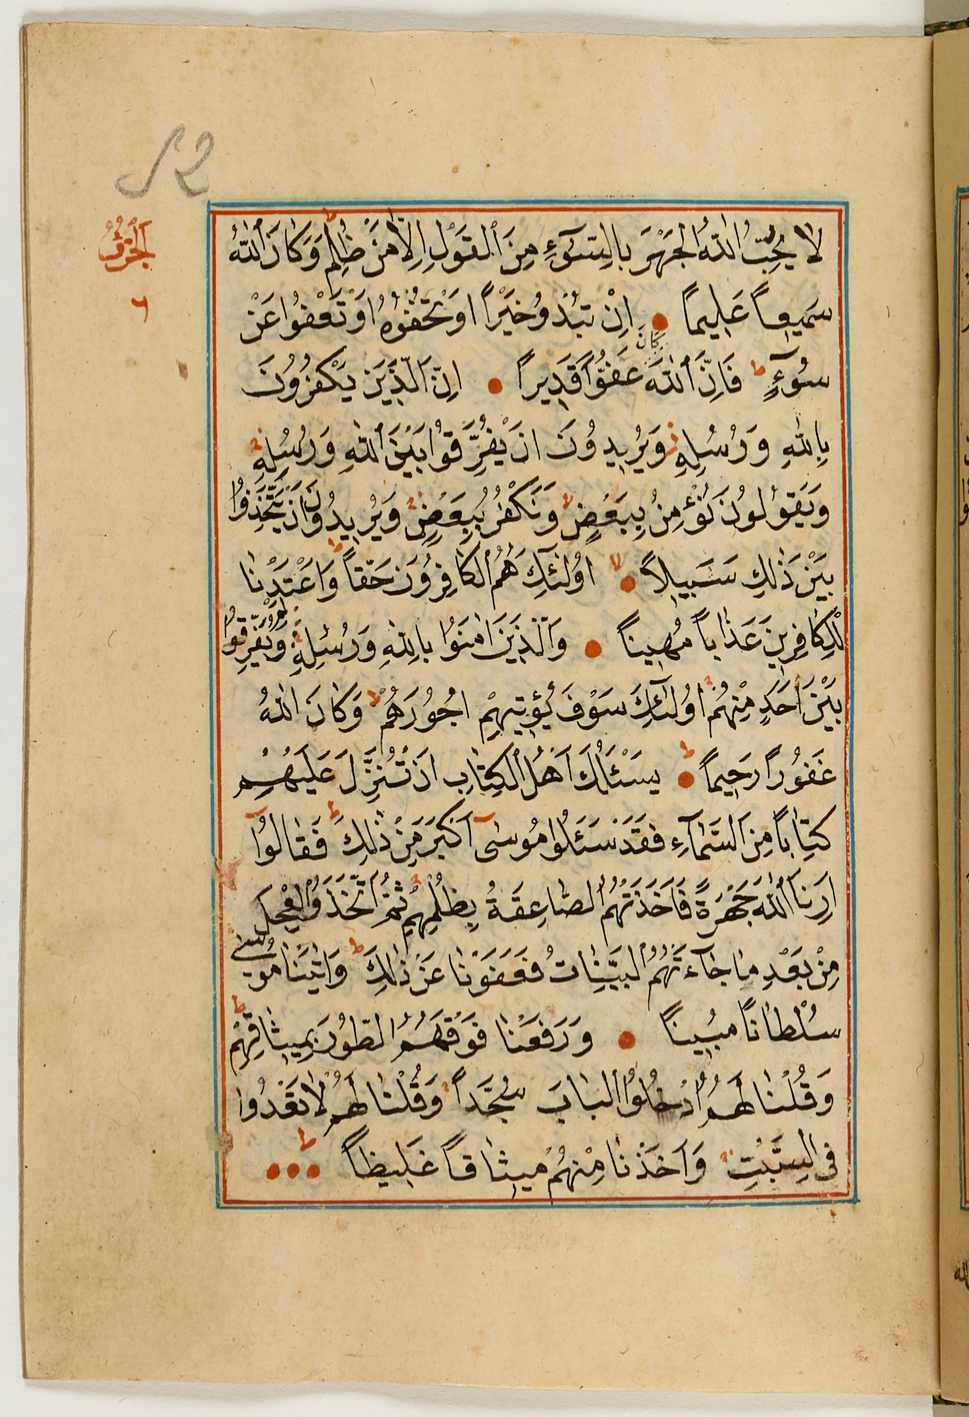 ٥٢
الجزؤ
٦
لا يُحِبُّ اللهُ الجَهْرَ بِالسُّوٓءِ مِنَ ٱلْقَوْلِ اِلَّا مَنْ ظُلِمَ وَكَانَ ٱللهُ
سَمِيعاً عَلِيماً اِنْ تُبْدُوخَيْراً اَوْتُخْفُوهُ اَوْتَعْفُوا عَنْ
سُوٓءٍ فَاِنَّ ٱللهَ كان عَفُوًّا قَدِيراً اِنَّ الَّذِينَ يَكْفُرُونَ
بِاللهِ وَرُسُلِهِ وَيُرِيدُونَ اَنْ يُفَرِّقُوا بَيْنَ ٱللهِ وَرُسُلِهِ
وَيَقُولُونَ نُؤْمِنُ بِبَعْضٍ وَنَكْفُرُ بِبَعْضٍ وَيُرِيدُونَ اَنْ يَتَّخِذُوا
بَيْنَ ذٰلِكَ سَبِيلاً اُولٰئِكَ هُمُ الْكَافِرُونَ حَقّاً وَاعْتَدْنَا
لِلْكَافِرِينَ عَذَاباً مُهِيناً وَالَّذِينَ اٰمَنُوا بِاللهِ وَرُسُلِهِ وَلَمْ يُفَرِّقُوا
بَيْنَ اَحَدٍ مِنْهُمْ اُولٰئِكَ سَوْفَ يُؤْتِيهِمْ اُجُورَهُمْ وَكَانَ اللهُ
غَفُورًا رَحِيماً يَسْئَلُكَ اَهْلُ الْكِتَابِ اَنْ تُنَزِّلَ عَلَيْهِمْ
كِتَاباً مِنَ السَّمَآءِ فَقَدْ سَئَلُوا مُوسٰىٓ اَكْبَرَ مِنْ ذٰلِكَ فَقَالُوٓا
اَرِنَا اللهَ جَهْرَةً فَاَخَذَتْهُمُ الصَّاعِقَةُ بِظُلْمِهِمْ ثُمَّ اتَّخَذُوا الْعِجْلَ
مِنْ بَعْدِ مَا جَآءَتْهُمُ الْبَيِّنَاتُ فَعَفَوْنَا عَنْ ذٰلِكَ وَاٰتَيْنَا مُوسٰى
سُلْطَاناً مُبِيناً وَرَفَعْنَا فَوْقَهُمُ الطُّورَ بِمِيثَاقِهِمْ
وَقُلْنَا لَهُمُ ادْخُلُوا الْبَابَ سُجَّداً وَقُلْنَا لَهُمْ لَا تَعْدُوا
فِى السَّبْتِ وَاَخَذْنَا مِنْهُمْ مِيثَاقاً غَلِيظاً